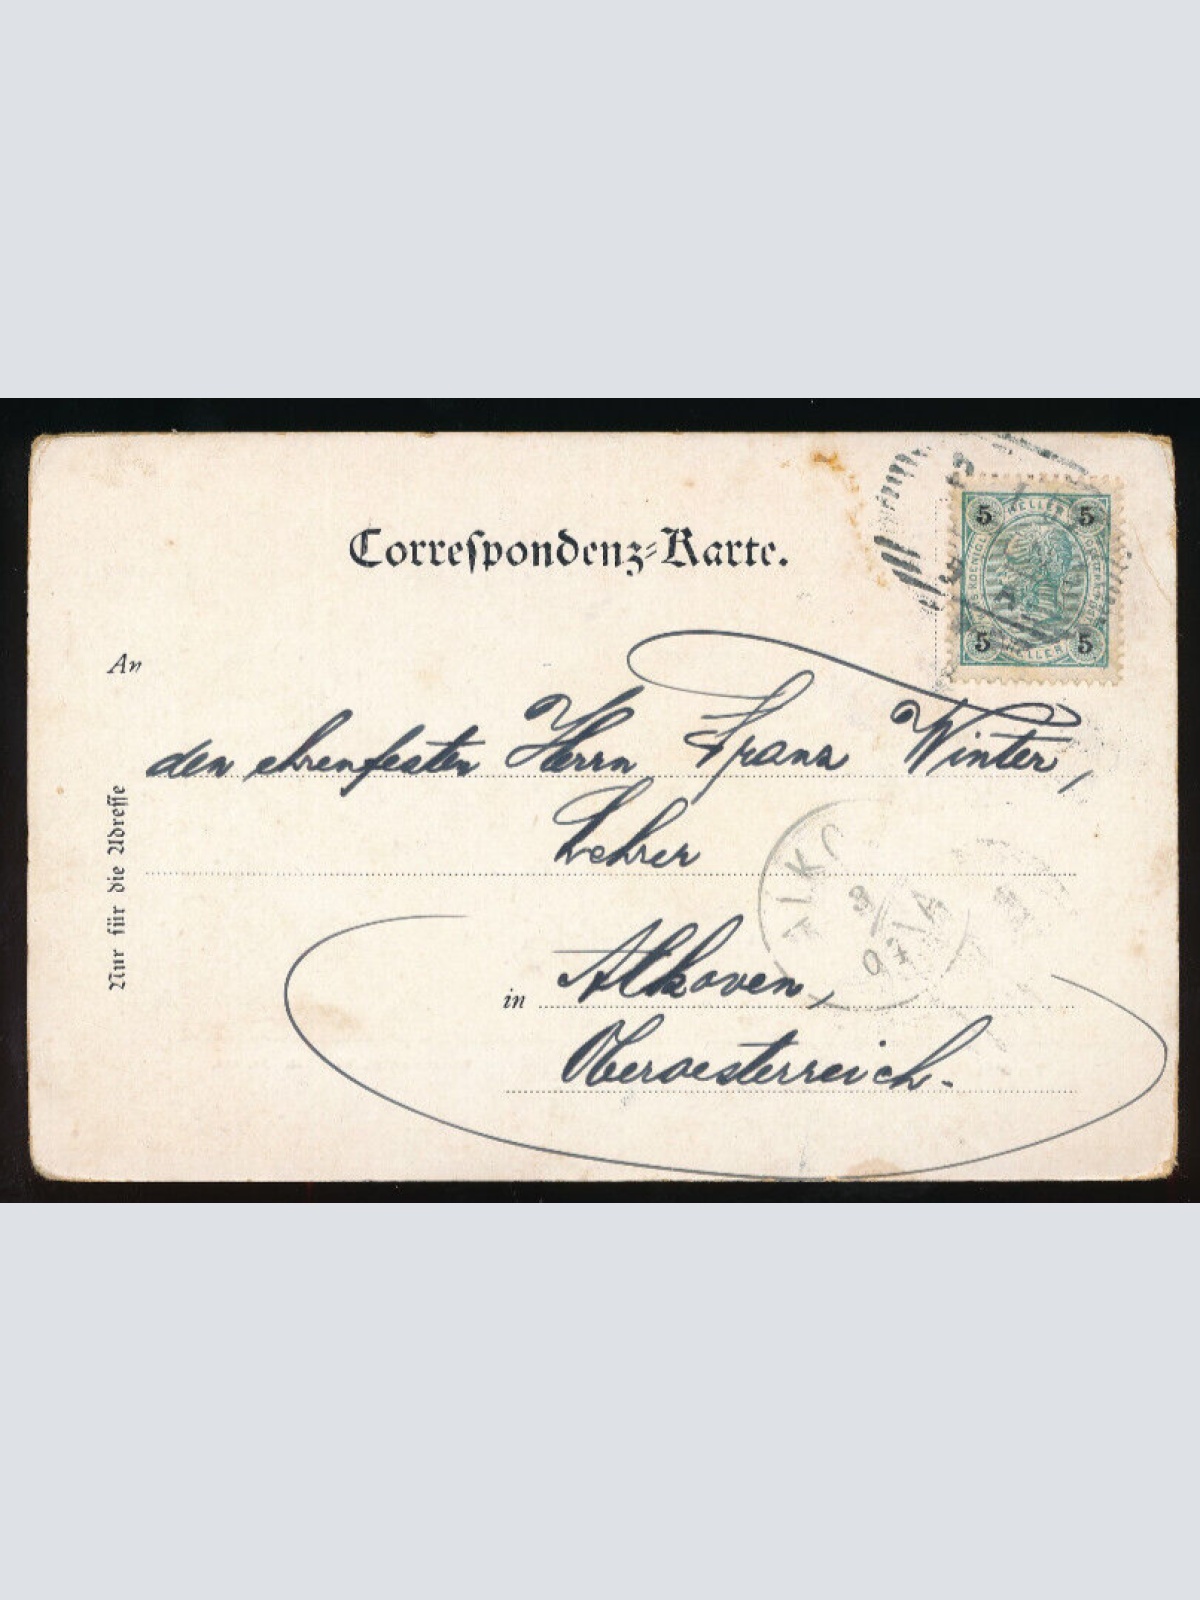 Correſpondenz-Karte.
5 HELLER 5
5 HELLER 5
An
den ehrenfesten Herrn Franz Winter,
Lehrer
in Alkoven,
Oberoesterreich.
Nur für die Adreſſe
ALKO